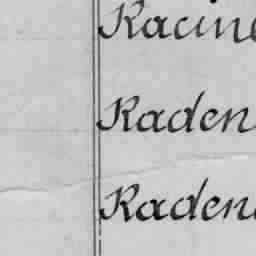 Racine
Raden
Raden